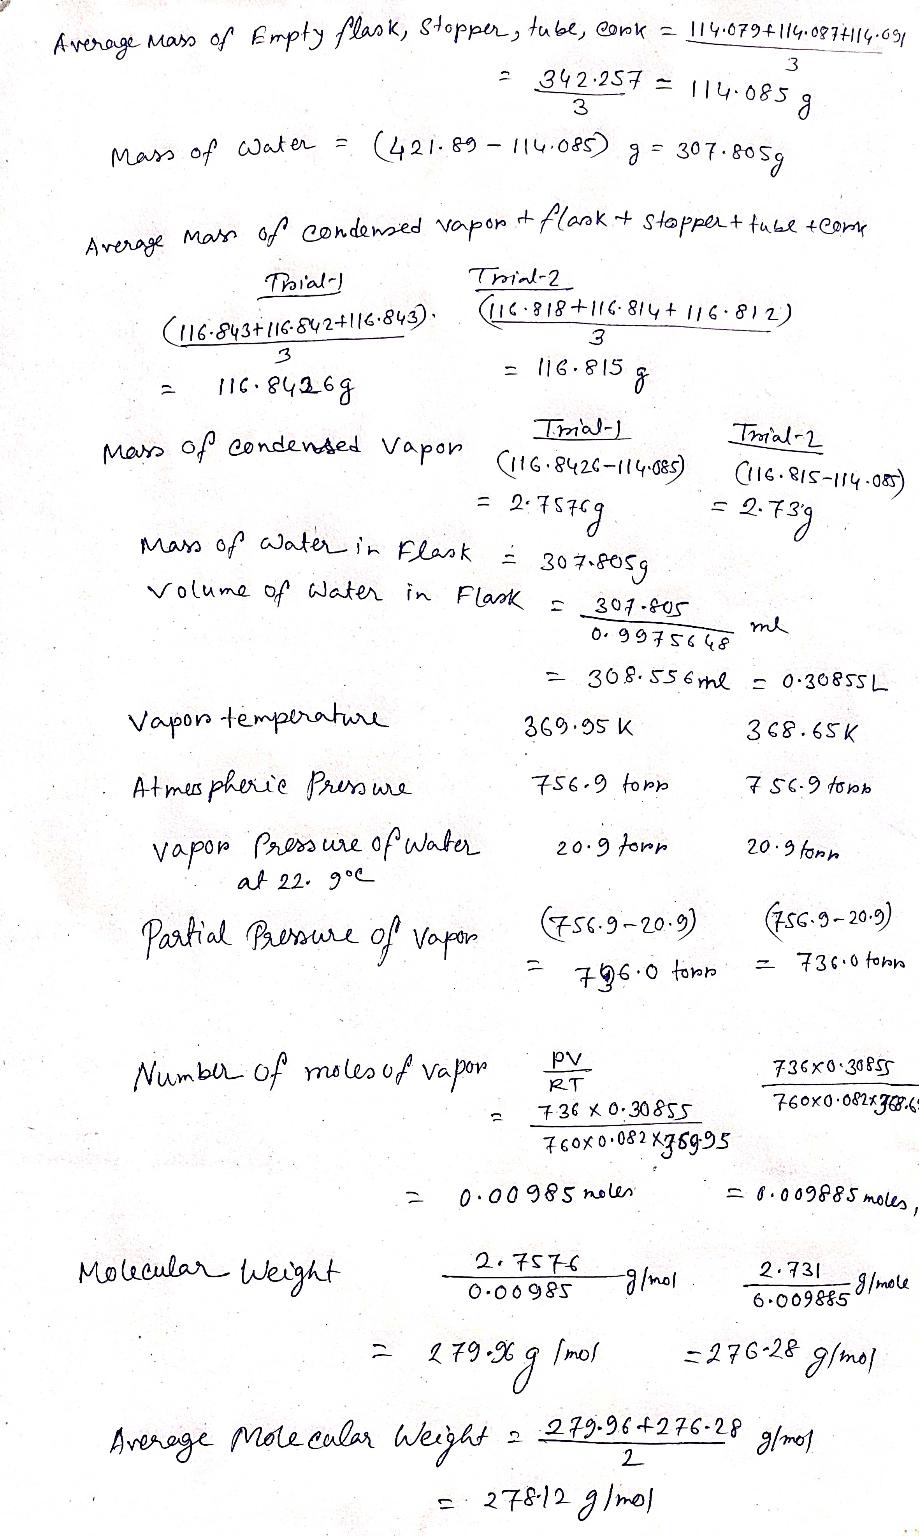 Average Mass of Empty flask, Stopper, tube, cork = 114.079+114.087+114.091
3
= 342.257 = 114.085 g
3
Mass of Water = (421.89 - 114.085) g = 307.805g
Average Mass of condensed vapor + flask + stopper + tube + cork
Trial-1 Trial-2
(116.843+116.842+116.843). (116.818+116.814+116.812)
3 3
= 116.8426g = 116.815 g
Mass of condensed Vapor Trial-1 Trial-2
(116.8426-114.085) (116.815-114.085)
= 2.7576g = 2.73g
Mass of Water in Flask = 307.805g
Volume of Water in Flask = 307.805 ml
0.9975648
= 308.556ml = 0.30855L
Vapor temperature 369.95 K 368.65K
Atmospheric Pressure 756.9 torr 756.9 torr
Vapor Pressure of Water 20.9 torr 20.9 torr
at 22.9°C
Partial Pressure of Vapor (756.9-20.9) (756.9-20.9)
= 736.0 torr = 736.0 torr
Number of moles of vapor PV 736x0.30855
RT 760x0.082x368.6
= 736 x 0.30855
760x0.082x369.95
= 0.00985 moles = 0.009885 moles,
Molecular Weight 2.7576 g/mol. 2.731 g/mole
0.00985 0.009885
= 279.96 g/mol = 276.28 g/mol
Average Molecular Weight = 279.96+276.28 g/mol
2
= 278.12 g/mol